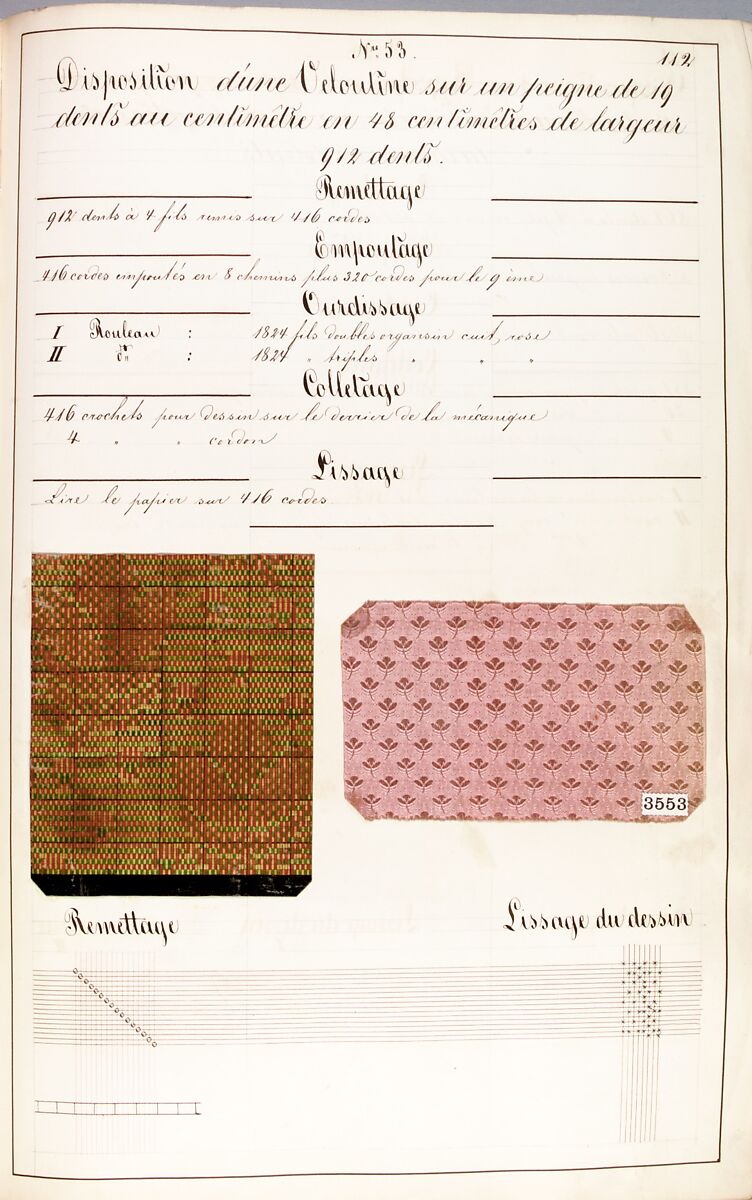 Nº 53.
112
Disposition d'une Veloutine sur un peigne de 19
dents au centimètre en 48 centimètres de largeur
912 dents.
Remettage
912 dents à 4 fils remis sur 416 cordes
Empoutage
416 cordes empoutés en 8 chemins plus 320 cordes pour le 9 ème
Ourdissage
I Rouleau : 1824 fils doubles organsin cuit, rose
II dº : 1824 " triples " " "
Colletage
416 crochets pour dessin sur le derrier de la mécanique
4 " " cordon
Lissage
Lire le papier sur 416 cordes
3553
Remettage
Lissage du dessin